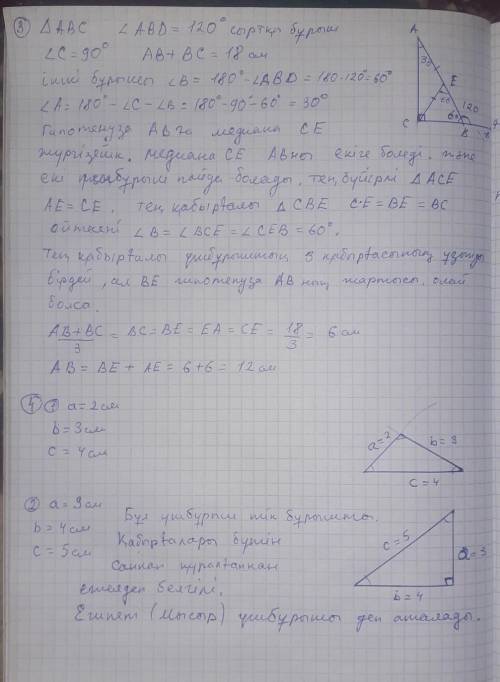 ③ △ABC ∠ABD = 120° сыртқы бұрыш
∠C = 90° AB + BC = 18 см
ішкі бұрышы ∠B = 180° - ∠ABD = 180 - 120° = 60°
∠A = 180° - ∠C - ∠B = 180° - 90° - 60° = 30°
Гипотенуза AB ға медиана CE
жүргізейік. Медиана CE AB ны екіге бөледі, және
екі үшбұрыш пайда болады, тең бүйірлі △ACE
AE = CE, тең қабырғалы △CBE CE = BE = BC
өйткені ∠B = ∠BCE = ∠CEB = 60°.
Тең қабырғалы үшбұрыштың 3 қабырғасының ұзындығы
бірдей, ал BE гипотенуза AB ның жартысы, олай
болса.
AB + BC / 3 = BC = BE = EA = CE = 18 / 3 = 6 см
AB = BE + AE = 6 + 6 = 12 см
A
30
E
60
120
C
60
B
④ ① a = 2 см
b = 3 см
c = 4 см
a = 2
b = 3
c = 4
② a = 3 см
b = 4 см
c = 5 см
Бұл үшбұрыш тік бұрышты.
Қабырғалары бүтін
саннан құралғаннан
ежелден белгілі,
Египет (Мысыр) үшбұрышы деп аталады.
c = 5
a = 3
b = 4